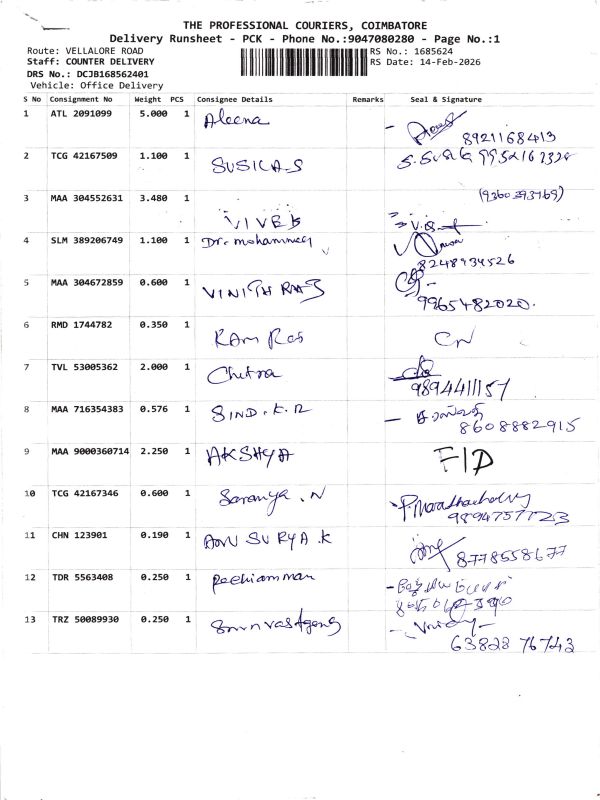 THE PROFESSIONAL COURIERS, COIMBATORE
Delivery Runsheet - PCK - Phone No.:9047080280 - Page No.:1
Route: VELLALORE ROAD
RS No.: 1685624
Staff: COUNTER DELIVERY
RS Date: 14-Feb-2026
DRS No.: DCJB168562401
Vehicle: Office Delivery
S No Consignment No Weight PCS Consignee Details Remarks Seal & Signature
1 ATL 2091099 5.000 1 Aleena
8921168413
2 TCG 42167509 1.100 1 SUSILA S
3 MAA 304552631 3.480 1 VIVEK
4 SLM 389206749 1.100 1 Dr. mohammed
8248934526
5 MAA 304672859 0.600 1 VINITH RAJ
9965482020.
6 RMD 1744782 0.350 1 Ram Raj
7 TVL 53005362 2.000 1 Chitra
9894411157
8 MAA 716354383 0.576 1 SIND.K.R
8608882915
9 MAA 9000360714 2.250 1 AKSHYA F/D
10 TCG 42167346 0.600 1 Saranya .N
9894757723
11 CHN 123901 0.190 1 ARUN SURYA .K
8778558677
12 TDR 5563408 0.250 1 Pechiammal
13 TRZ 50089930 0.250 1
63828 76743